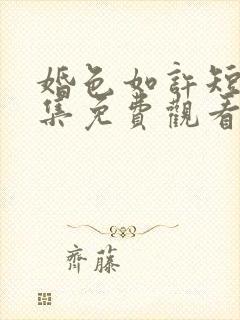 婚色如許短
集免費觀看
齊藤